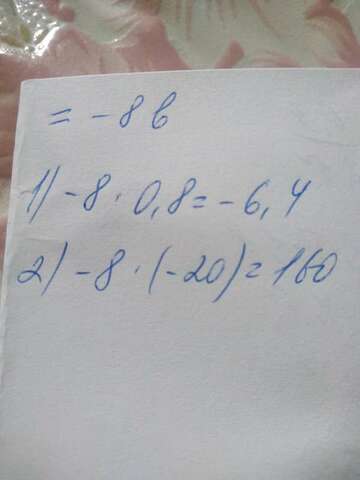 = -8 в
1) -8 · 0,8 = -6,4
2) -8 · (-20) = 160